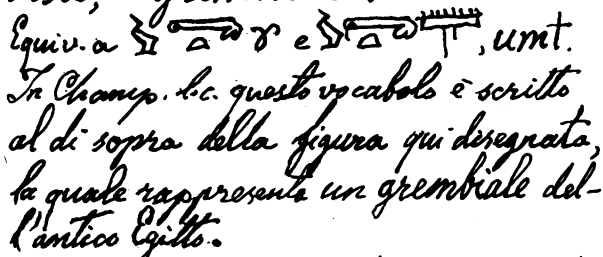 Equiv. a e , umt.
In Champ. l.c. questo vocabolo è scritto
al di sopra della figura qui disegnata,
la quale rappresenta un grembiale del-
l'antico Egitto.